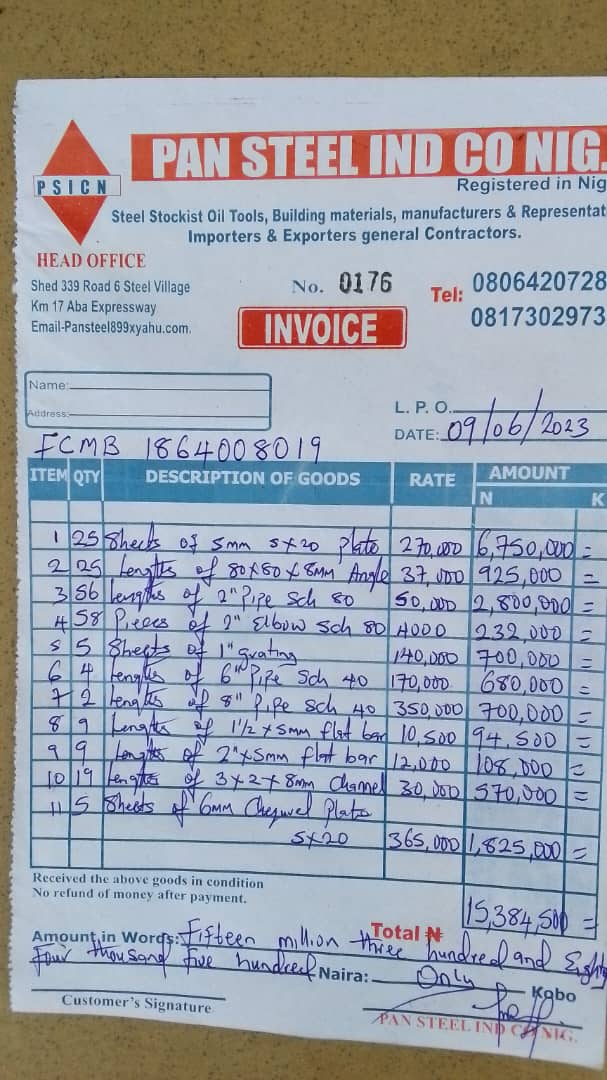 PSICN
PAN STEEL IND CO NIG.
Registered in Nig
Steel Stockist Oil Tools, Building materials, manufacturers & Representat
Importers & Exporters general Contractors.
HEAD OFFICE
Shed 339 Road 6 Steel Village
Km 17 Aba Expressway
Email-Pansteel899xyahu.com.
No. 0176
INVOICE
Tel: 0806420728
0817302973
Name:
Address:
L. P. O.
DATE: 09/06/2023
FCMB 1864008019
ITEM QTY DESCRIPTION OF GOODS RATE AMOUNT
N K
1 25 Sheets of 5mm 5x20 Plate 270,000 6,750,000 =
2 25 Lengths of 80x80x8mm Angle 37,000 925,000 =
3 56 Lengths of 2" Pipe Sch 80 50,000 2,800,000 =
4 58 Pieces of 2" Elbow Sch 80 4000 232,000 =
5 5 Sheets of 1" grating 140,000 700,000 =
6 4 Lengths of 6" Pipe Sch 40 170,000 680,000 =
7 2 Lengths of 8" Pipe Sch 40 350,000 700,000 =
8 9 Lengths of 1 1/2 x 5mm flat bar 10,500 94,500 =
9 9 Lengths of 2" x 5mm flat bar 12,000 108,000 =
10 19 Lengths of 3x2x8mm Channel 30,000 570,000 =
11 5 Sheets of 6mm Chequred Plate
5x20 365,000 1,825,000 =
Received the above goods in condition
No refund of money after payment.
Total ₦ 15,384,500 =
Amount in Words: Fifteen million three hundred and Eighty
Four thousand five hundred Naira: Only Kobo
Customer's Signature
PAN STEEL IND CO NIG.